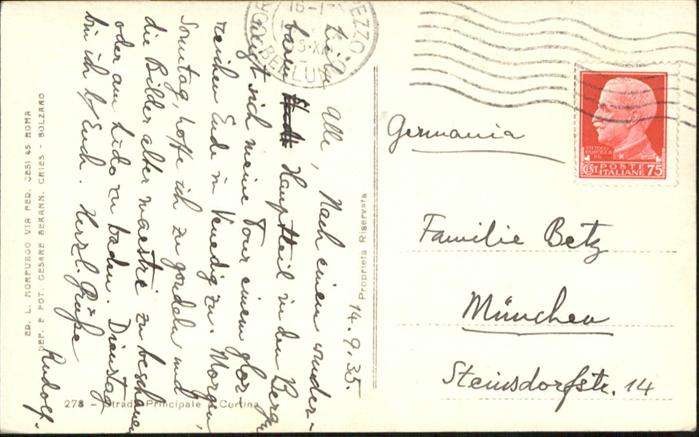 14.9.35
Liebe Alle, Nach einem wunder-
baren Hauptteil in den Bergen
neigt sich meine Tour einem glor-
reichen Ende in Venedig zu. Morgen,
Sonntag, hoffe ich zu gondeln und
die Bilder alter maestri zu beschauen
oder am Lido zu baden. Dienstag
bin ich b/ Euch. Herzl. Grüße
Rudolf.
Germania
Familie Betz
München
Steinsdorfstr. 14
POSTE
ITALIANE
CENT. 75
Proprietà Riservata
ED. L. MORPURGO VIA FED. CESI 45 ROMA
DEP. E FOT. CESARE BERANN. GRIES - BOLZANO
278 - Strada Principale - Cortina